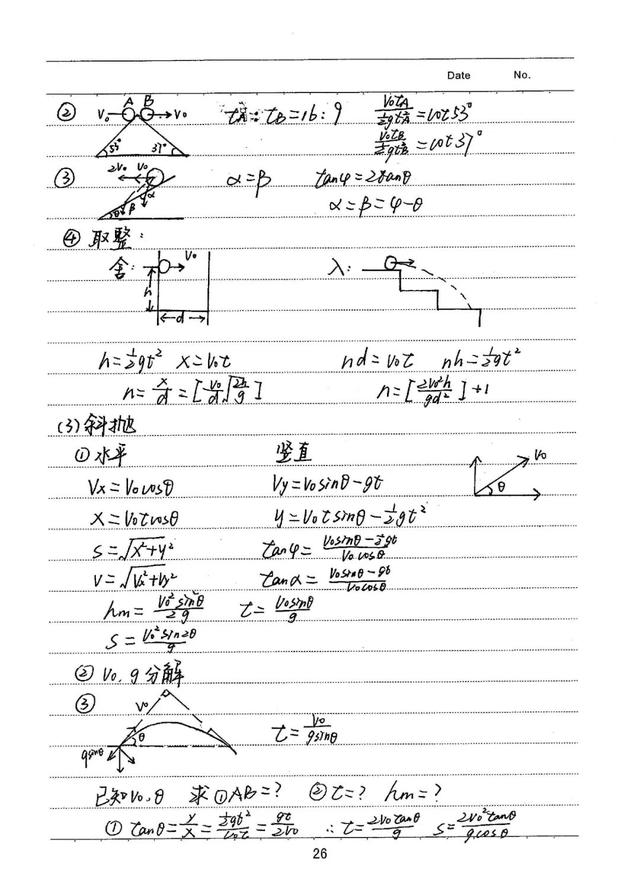 Date No.
② A B V₀ V₀ 53° 37° tA:tB=16:9 V₀tA/½gtA²=cot53°
V₀tB/½gtB²=cot37°
③ 2V₀ V₀ θ β α α=β tanφ=2tanθ
α=β=φ-θ
④ 取整:
舍: V₀ h d 入:
h=½gt² x=V₀t nd=V₀t nh=½gt²
n=x/d=[V₀/d√(2h/g)] n=[2V₀²h/gd²]+1
(3)斜抛
①水平 竖直 V₀ θ
Vx=V₀cosθ Vy=V₀sinθ-gt
X=V₀tcosθ y=V₀tsinθ-½gt²
s=√(x²+y²) tanφ=(V₀sinθ-½gt)/(V₀cosθ)
v=√(Vx²+Vy²) tanα=(V₀sinθ-gt)/(V₀cosθ)
hm=V₀²sin²θ/2g t=V₀sinθ/g
s=V₀²sin2θ/g
② V₀,g分解
③ V₀ θ gsinθ t=V₀/gsinθ
已知V₀,θ 求①AB=? ②t=? hm=?
① tanθ=y/x=½gt²/V₀t=gt/2V₀ ∴t=2V₀tanθ/g s=2V₀²tanθ/g.cosθ
26